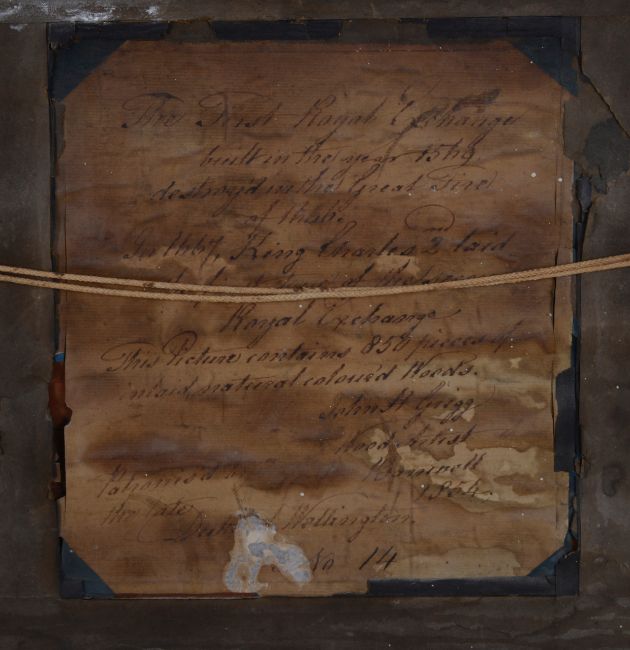 The First Royal Exchange
built in the year 1569
destroyd in the Great Fire
of 1666.
In 1667, King Charles 2nd laid
the first stone of the
Royal Exchange
This Picture contains 850 pieces of
inlaid natural coloured Woods.
John H Grigg
Wood Artist
1864.
Patronis'd
the late
Duke Wellington.
No 14